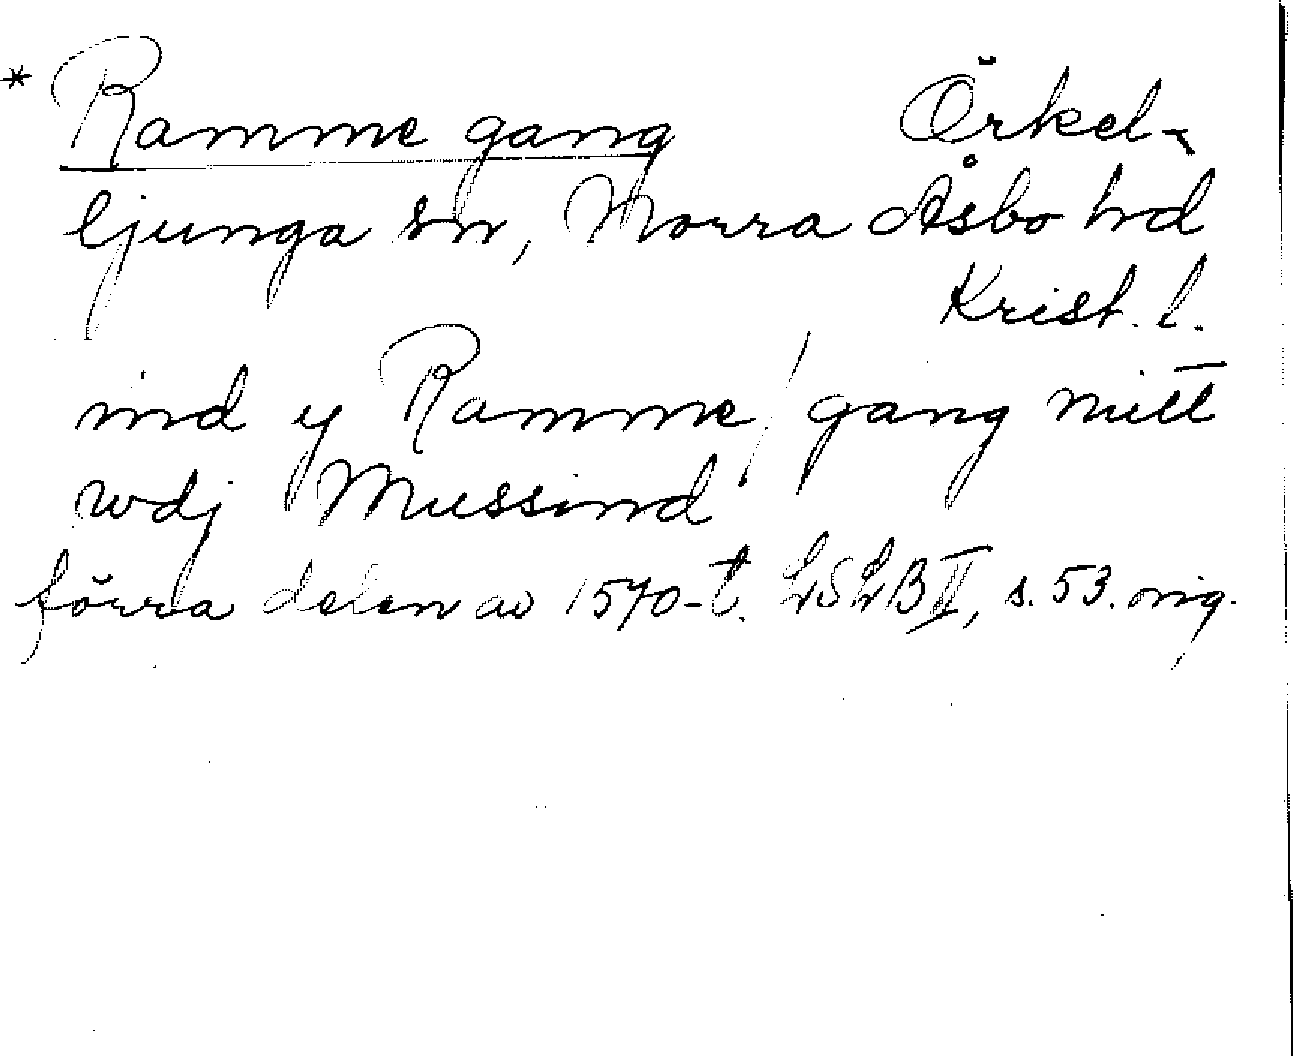 * Ramme gang Örkel-
ljunga sn, Norra Åsbo hd
Krist. l.
ind y Ramme/gang mitt
wdj Mussind
förra delen av 1570-t. LSLB II, s. 53. orig.